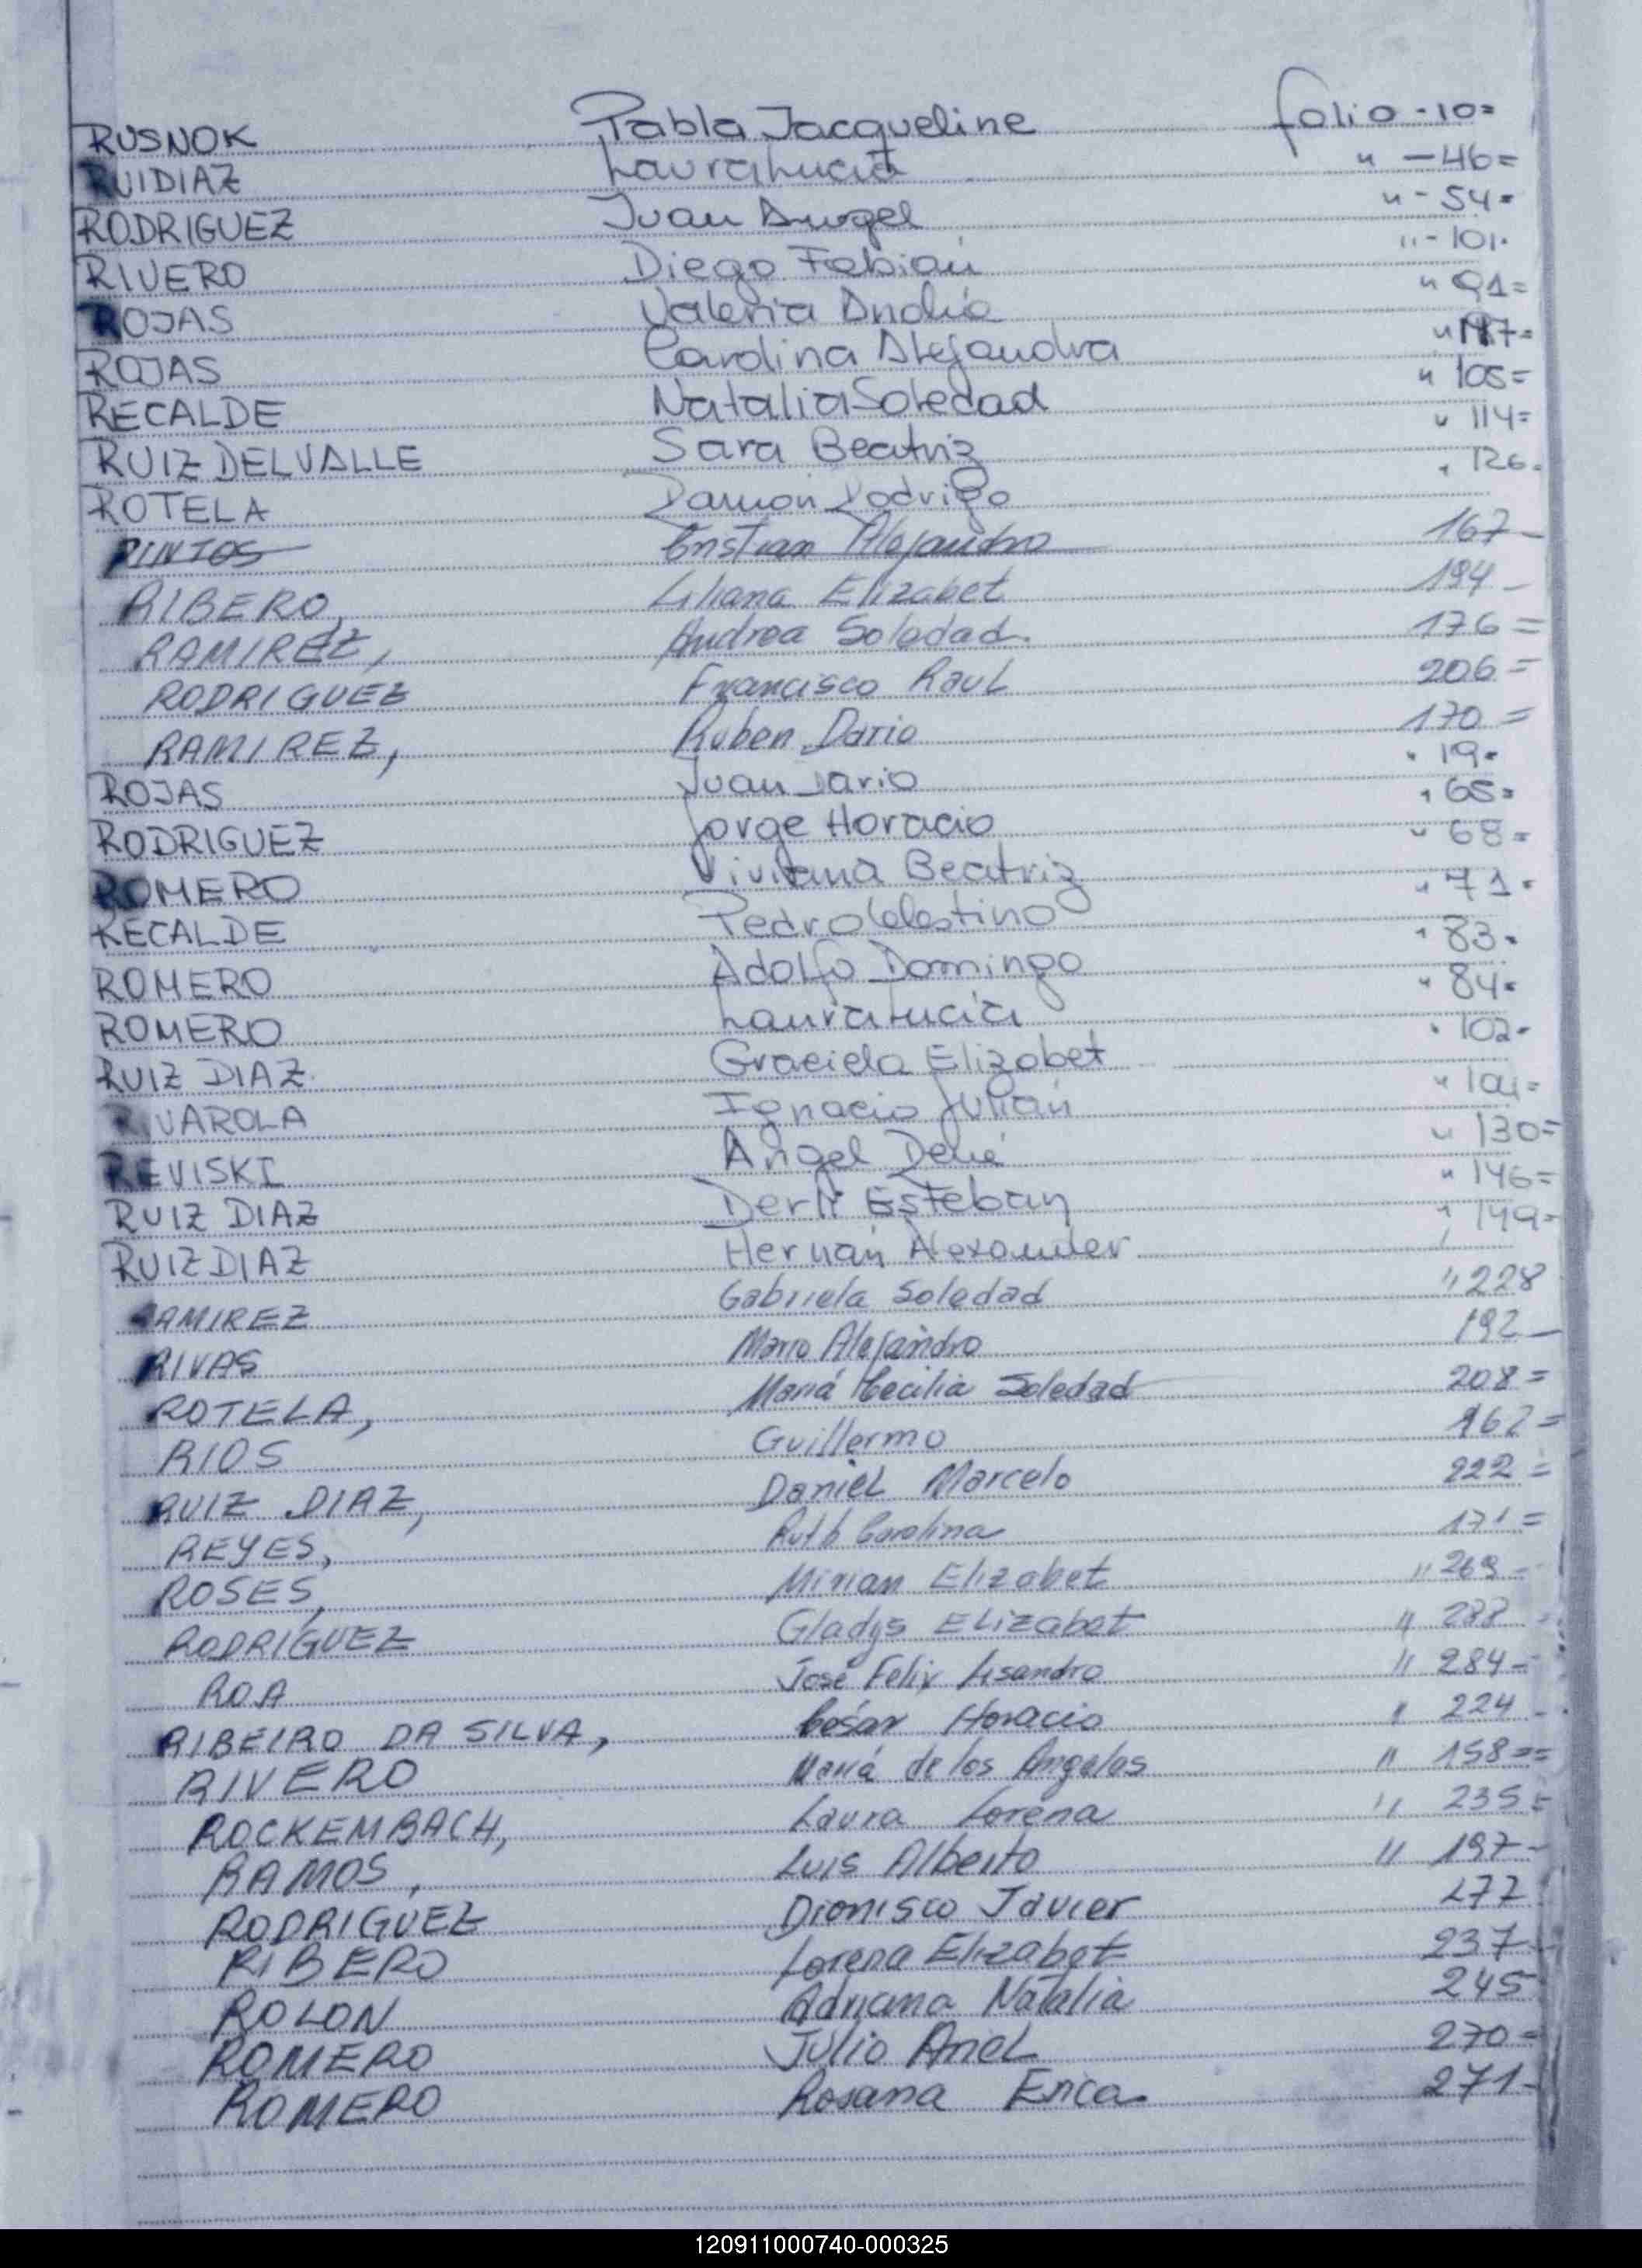 RUSNOK Pabla Jacqueline folio - 10=
RUIDIAZ Laura Lucia " - 46=
RODRIGUEZ Juan Angel " - 54=
RIVERO Diego Fabián " - 101.
ROJAS Valeria Andréa " 91=
ROJAS Carolina Alejandra "
RECALDE Natalia Soledad " 105=
RUIZ DELVALLE Sara Beatriz " 114=
ROTELA Ramón Rodrigo " 126.
PINTOS Cristian Alejandro 167-
RIBERO, Liliana Elizabet 194-
RAMIREZ, Andrea Soledad. 176=
RODRIGUEZ Francisco Raul 206=
RAMIREZ, Ruben Dario 170=
ROJAS Juan Dario " 19.
RODRIGUEZ Jorge Horacio " 65=
ROMERO Viviana Beatriz " 68=
RECALDE Pedro Celestino " 71.
ROMERO Adolfo Domingo " 83.
ROMERO Laura Lucia " 84.
RUIZ DIAZ Graciela Elizabet " 102.
RIVAROLA Ignacio Julián "
REVISKI Angel " 130=
RUIZ DIAZ Derli Esteban " 146=
RUIZ DIAZ Hernán Alexander " 149-
RAMIREZ Gabriela Soledad " 228
RIVAS Mario Alejandro 192-
ROTELA, María Cecilia Soledad 208=
RIOS Guillermo 162=
RUIZ DIAZ, Daniel Marcelo 222=
REYES, Ruth Carolina 171=
ROSES, Mirian Elizabet " 269-
RODRÍGUEZ Gladys Elizabet " 288
ROA José Felix Lisandro " 284-
RIBEIRO DA SILVA, César Horacio " 224
RIVERO María de los Angeles " 158==
ROCKEMBACH, Laura Lorena " 235=
RAMOS, Luis Alberto " 197-
RODRIGUEZ Dionisio Javier 177
RIBERO Lorena Elizabet 237-
ROLON Adriana Natalia 245
ROMERO Julio Ariel 270=
ROMERO Rosana Erica 271-
120911000740-000325